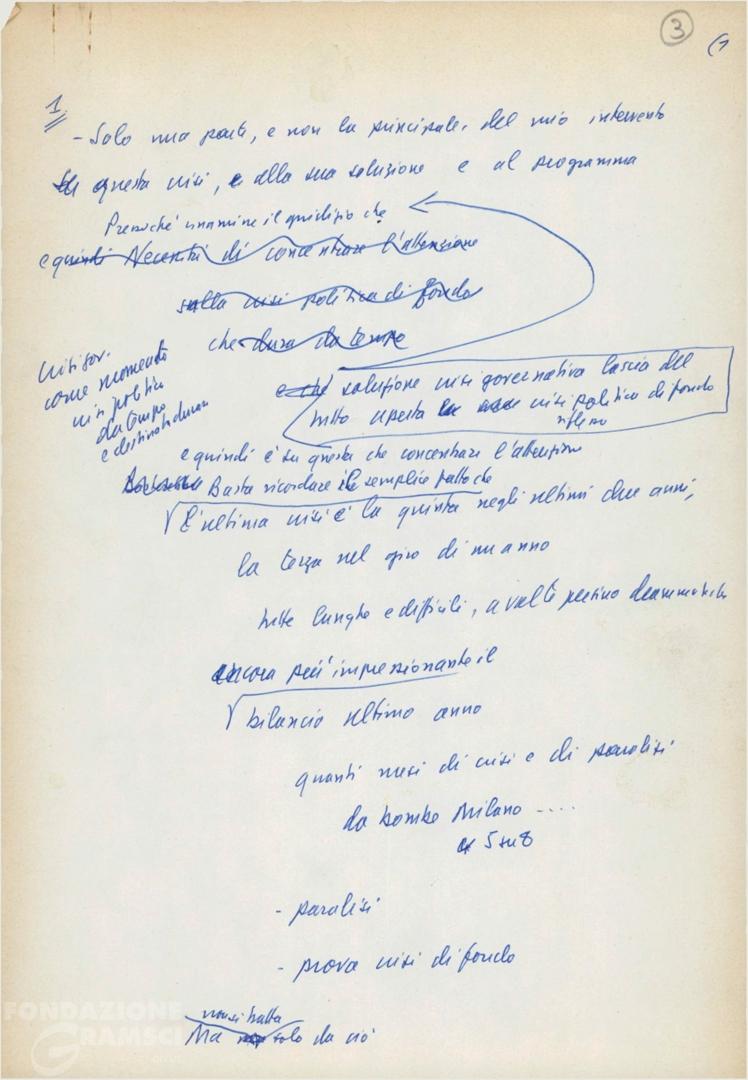 3
(1
1
- Solo una parte, e non la principale, del mio intervento
questa crisi, e alla sua soluzione e al programma
Pressoché unanime il giudizio che
e quindi Necessità di concentrare l'attenzione
sulla crisi politica di fondo
che dura da tempo
crisi gov.
come momento
crisi politica
da tempo
e destinata a durare
e che soluzione crisi governativa lascia del
tutto aperta crisi politica di fondo
e quindi è su questa che concentrare l'attenzione
Basta ricordare il semplice fatto che
L'ultima crisi è la quinta negli ultimi due anni,
la terza nel giro di un anno
tutte lunghe e difficili, a volte persino drammatiche
ancora più impressionante il
bilancio ultimo anno
quanti mesi di crisi e di paralisi
da bombe Milano ....
5 su 8
- paralisi
- prova crisi di fondo
non si tratta
Ma solo da ciò
FONDAZIONE
GRAMSCI